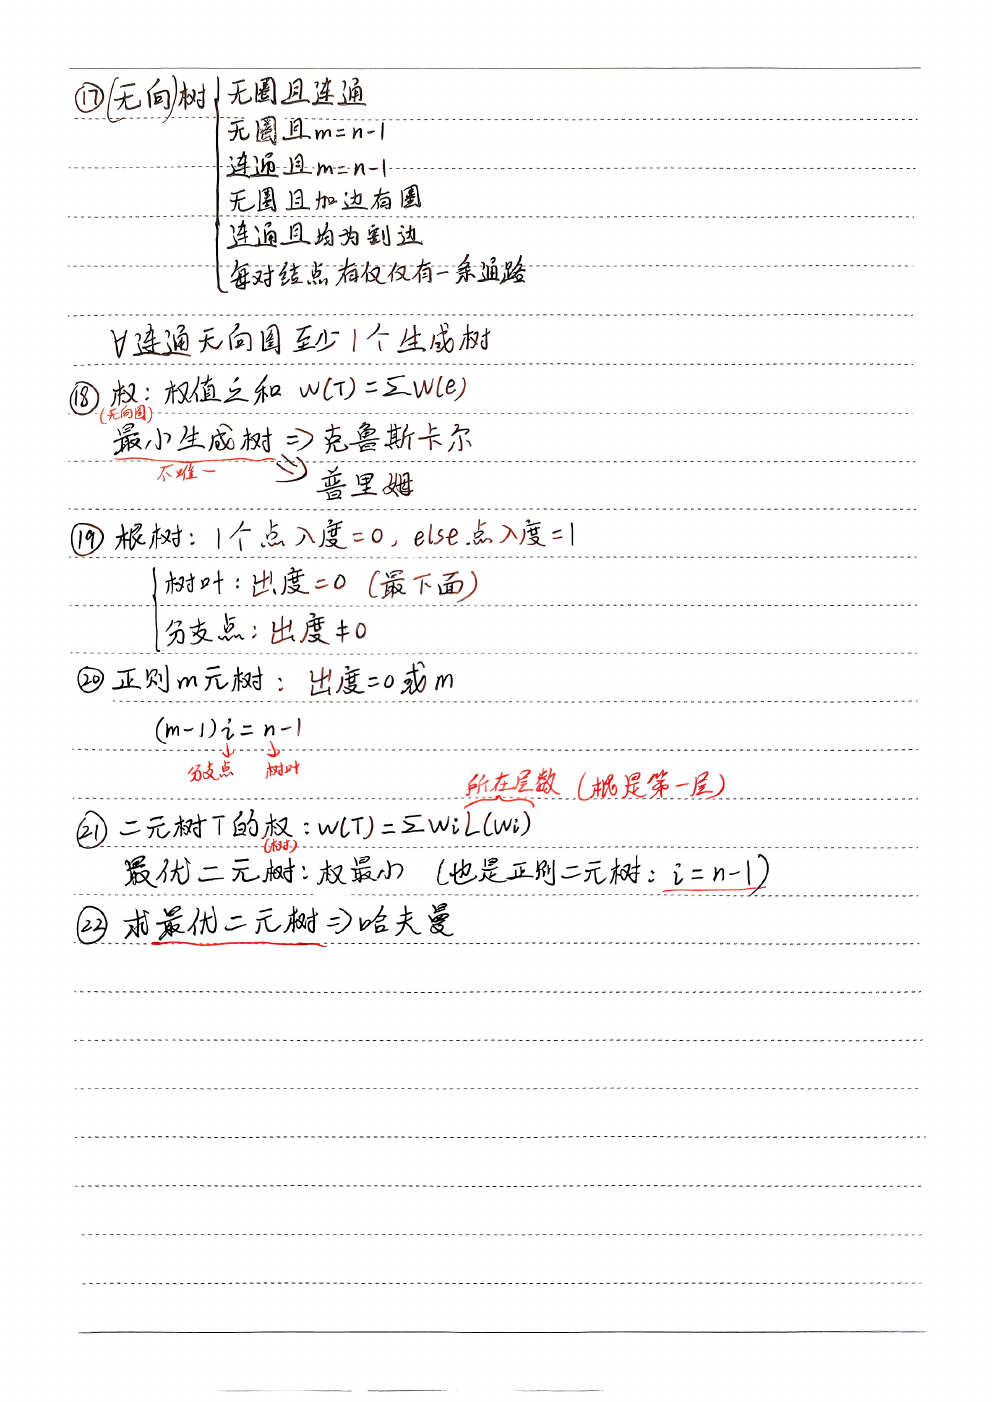 ⑰(无向)树{无圈且连通
无圈且m=n-1
连通且m=n-1
无圈且加边有圈
连通且均为割边
每对结点有仅仅有一条通路
∀连通无向图至少1个生成树
⑱权:权值之和 W(T)=ΣW(e)
(无向图)
最小生成树⇒克鲁斯卡尔
不唯一
⇒普里姆
⑲根树:1个点入度=0,else.点入度=1
{树叶:出度=0 (最下面)
分支点:出度≠0
⑳正则m元树: 出度=0或m
(m-1)i=n-1
↓ ↓
分支点 树叶
所在层数 (根是第一层)
㉑二元树T的权:W(T)=ΣWiL(Wi)
(树)
最优二元树:权最小 (也是正则二元树:i=n-1)
㉒求最优二元树⇒哈夫曼